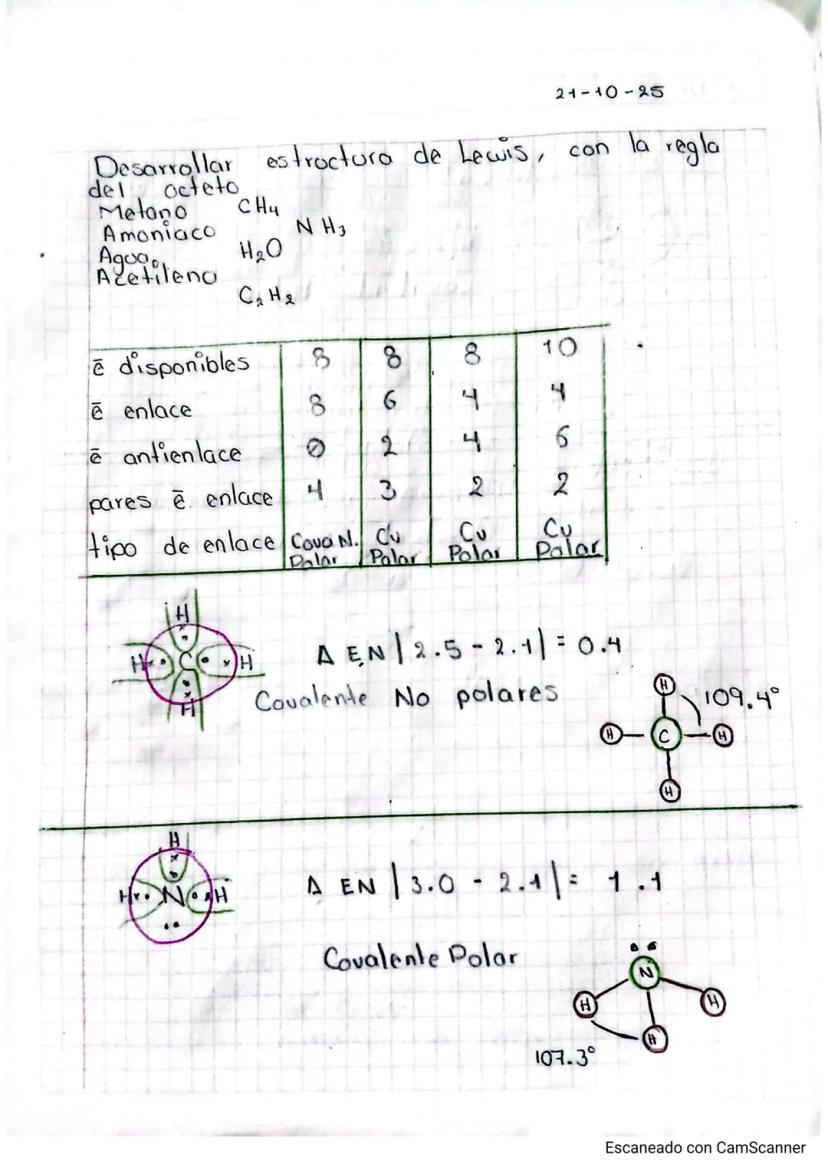 21-10-25
Desarrollar estructura de Lewis, con la regla
del octeto
Metano CH₄
Amoniaco NH₃
Agua H₂O
Acetileno
C₂H₂
ē disponibles 8 8 8 10
ē enlace 8 6 4 4
ē antienlace 0 2 4 6
pares ē enlace 4 3 2 2
tipo de enlace Cova N. Polar Cv Polar Cv Polar Cv Polar
H
H C H
H
Δ EN | 2.5 - 2.1 | = 0.4
Covalente No polares
H
109.4°
H C H
H
H
H N H
Δ EN | 3.0 - 2.1 | = 1.1
Covalente Polar
N
H H
H
107.3°
Escaneado con CamScanner